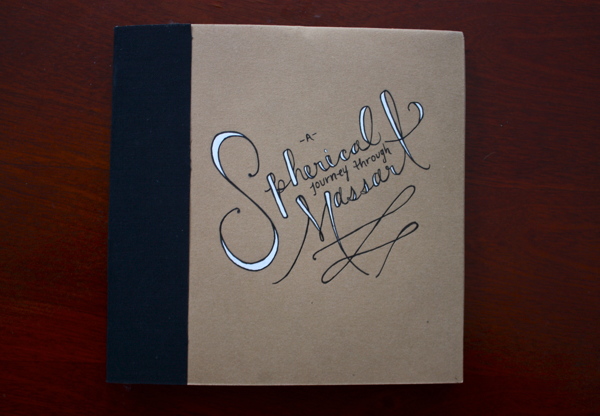 -A-
Spherical
journey through
Massart